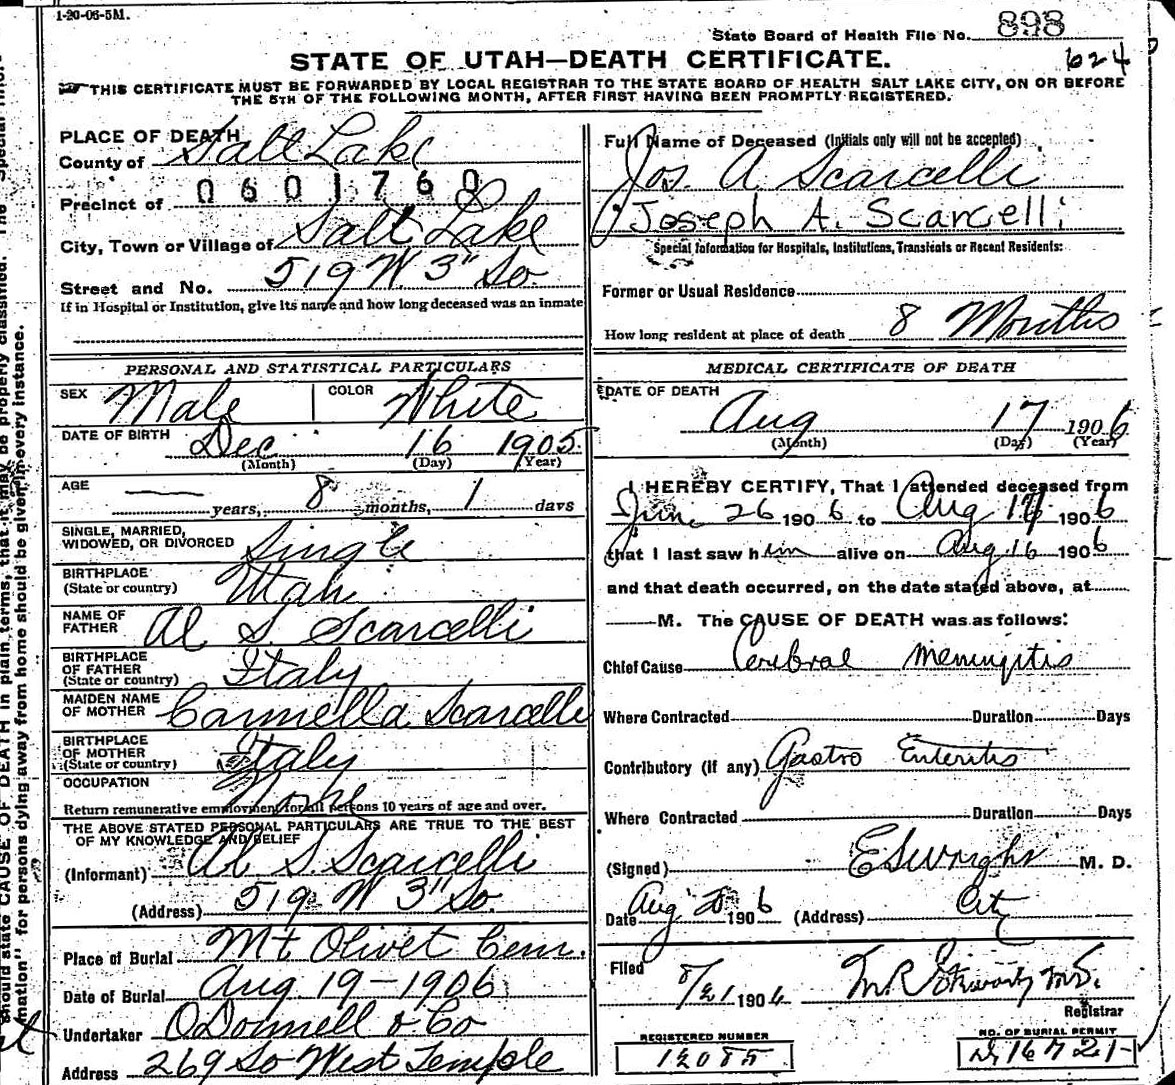 1-20-06-5M.
State Board of Health File No. 898
624
STATE OF UTAH—DEATH CERTIFICATE.
THIS CERTIFICATE MUST BE FORWARDED BY LOCAL REGISTRAR TO THE STATE BOARD OF HEALTH SALT LAKE CITY, ON OR BEFORE
THE 5TH OF THE FOLLOWING MONTH, AFTER FIRST HAVING BEEN PROMPTLY REGISTERED.
PLACE OF DEATH
County of Salt Lake
0601760
Precinct of
City, Town or Village of Salt Lake
Street and No. 519 W. 3" So.
If in Hospital or Institution, give its name and how long deceased was an inmate
PERSONAL AND STATISTICAL PARTICULARS
SEX Male COLOR White
DATE OF BIRTH Dec 16 1905
(Month) (Day) (Year)
AGE — years, 8 months, 1 days
SINGLE, MARRIED,
WIDOWED, OR DIVORCED Single
BIRTHPLACE
(State or country) Utah
NAME OF
FATHER Al S. Scarcelli
BIRTHPLACE
OF FATHER
(State or country) Italy
MAIDEN NAME
OF MOTHER Carmella Scarcelli
BIRTHPLACE
OF MOTHER
(State or country) Italy
OCCUPATION None
Return remunerative employment for all persons 10 years of age and over.
THE ABOVE STATED PERSONAL PARTICULARS ARE TRUE TO THE BEST
OF MY KNOWLEDGE AND BELIEF
(Informant) Al S. Scarcelli
(Address) 519 W 3" So.
Place of Burial Mt Olivet Cem.
Date of Burial Aug. 19-1906
Undertaker O'Donnell & Co
Address 269 So West Temple
Full Name of Deceased (Initials only will not be accepted)
Jos. A Scarcelli
Joseph A. Scarcelli
Special Information for Hospitals, Institutions, Transients or Recent Residents:
Former or Usual Residence
How long resident at place of death 8 Months
MEDICAL CERTIFICATE OF DEATH
DATE OF DEATH
Aug 17 1906
(Month) (Day) (Year)
I HEREBY CERTIFY, That I attended deceased from
June 26 1906 to Aug 17 1906
that I last saw him alive on Aug 16 1906
and that death occurred, on the date stated above, at
M. The CAUSE OF DEATH was as follows:
Chief Cause Cerebral Meningitis
Where Contracted Duration Days
Contributory (if any) Gastro Enteritis
Where Contracted Duration Days
(Signed) E S Wright M. D.
Date Aug 20 1906 (Address) City
Filed 8/21 1906 M.D.
Registrar
REGISTERED NUMBER
NO. OF BURIAL PERMIT
should state CAUSE OF DEATH in plain terms, that it may be properly classified. The "Special Infor-
mation" for persons dying away from home should be given in every instance.